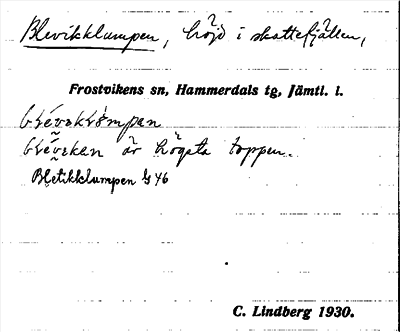 Blevikklumpen, höjd i skattefjällen,
Frostvikens sn, Hammerdals tg, Jämtl. l.
är högsta toppen.
Bletikklumpen G 46
C. Lindberg 1930.